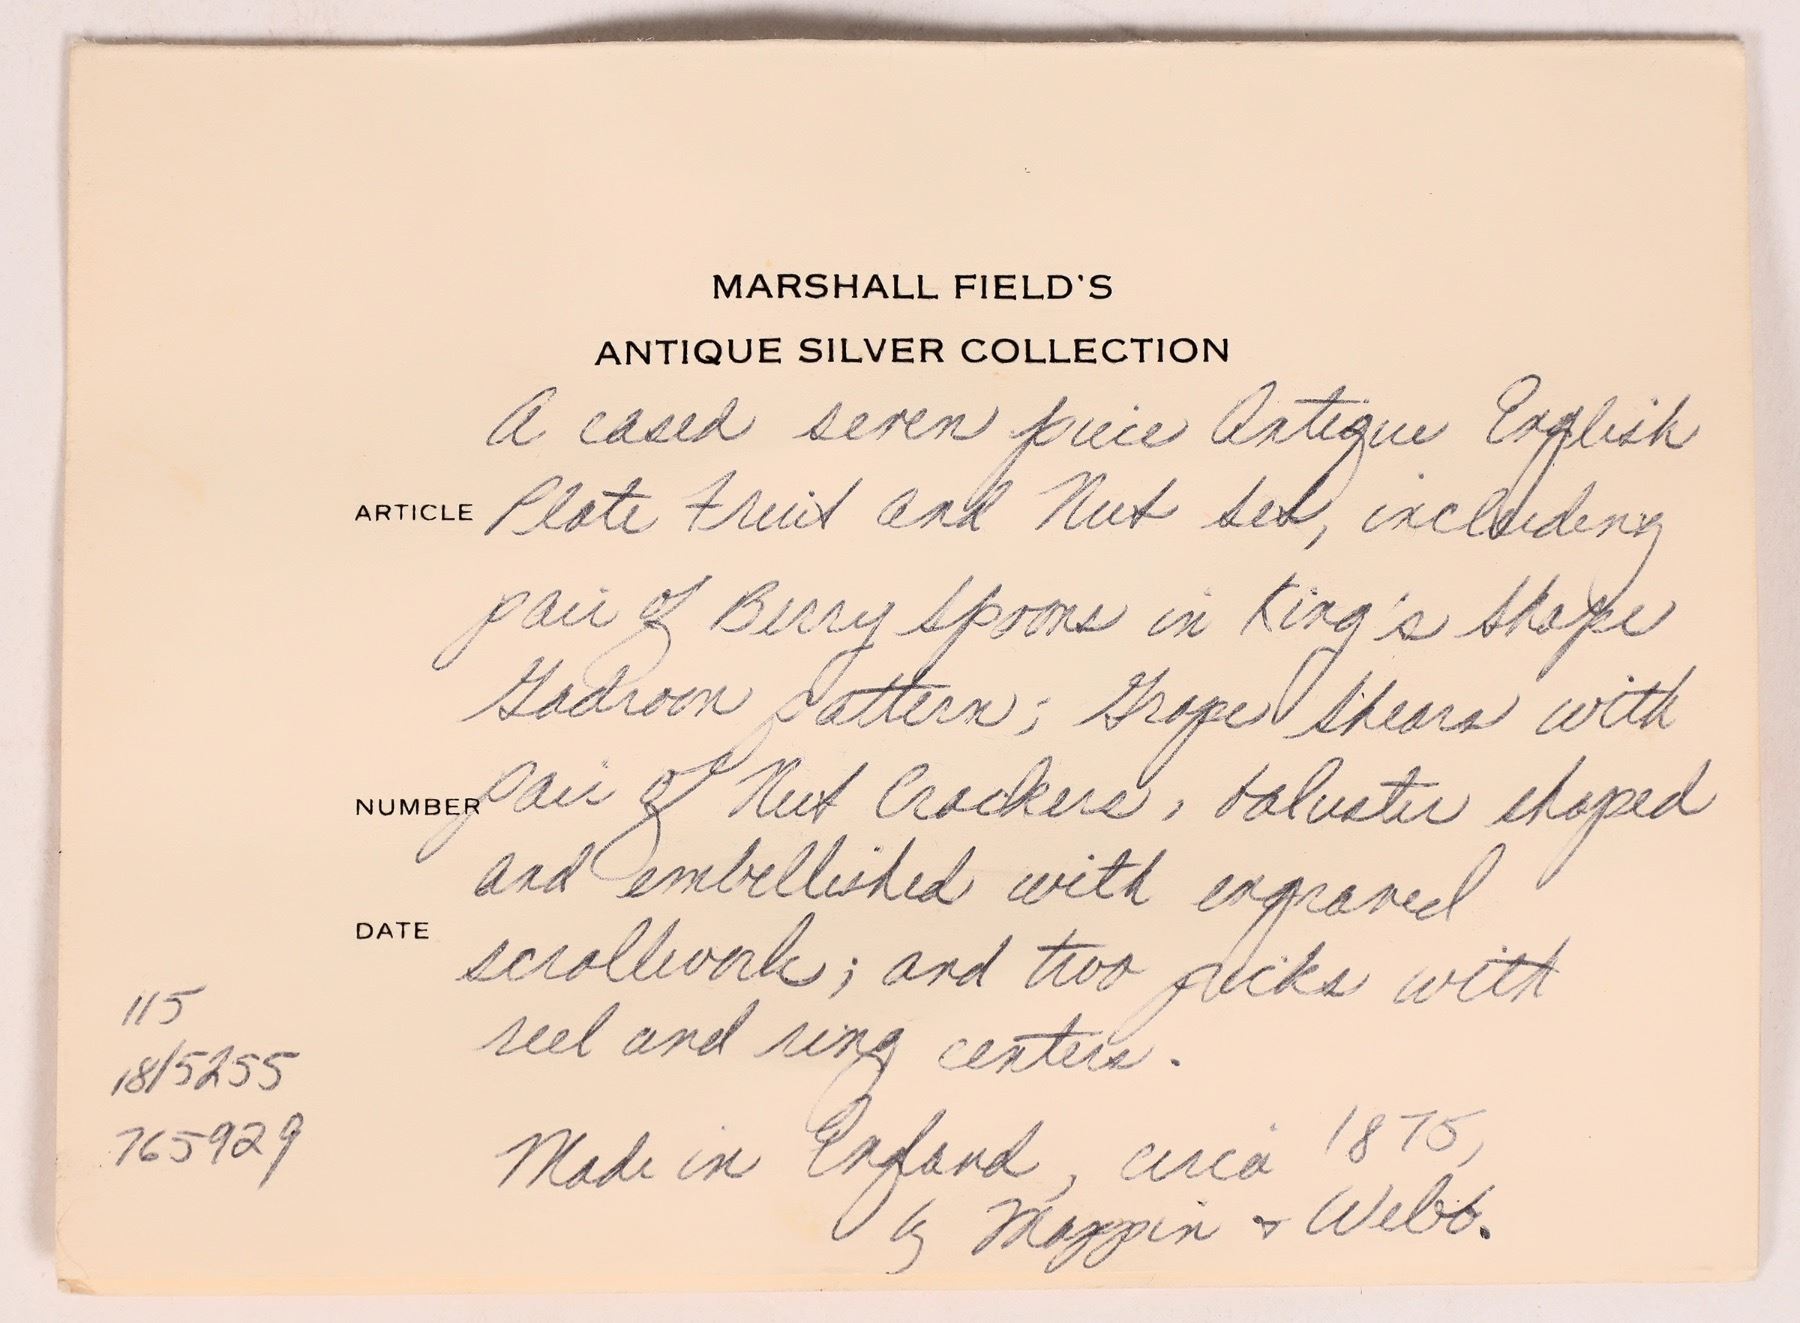 MARSHALL FIELD'S
ANTIQUE SILVER COLLECTION
A cased seven piece Antique English
ARTICLE Plate Fruit and Nut set, including
pair of Berry Spoons in King's shape
Gadroon pattern; Grape Shears with
NUMBER pair of Nut Crackers, baluster shaped
and embellished with engraved
DATE
scrollwork; and two picks with
reel and ring centers.
Made in England, circa 1875,
by Mappin & Webb.
115
18/5255
765929